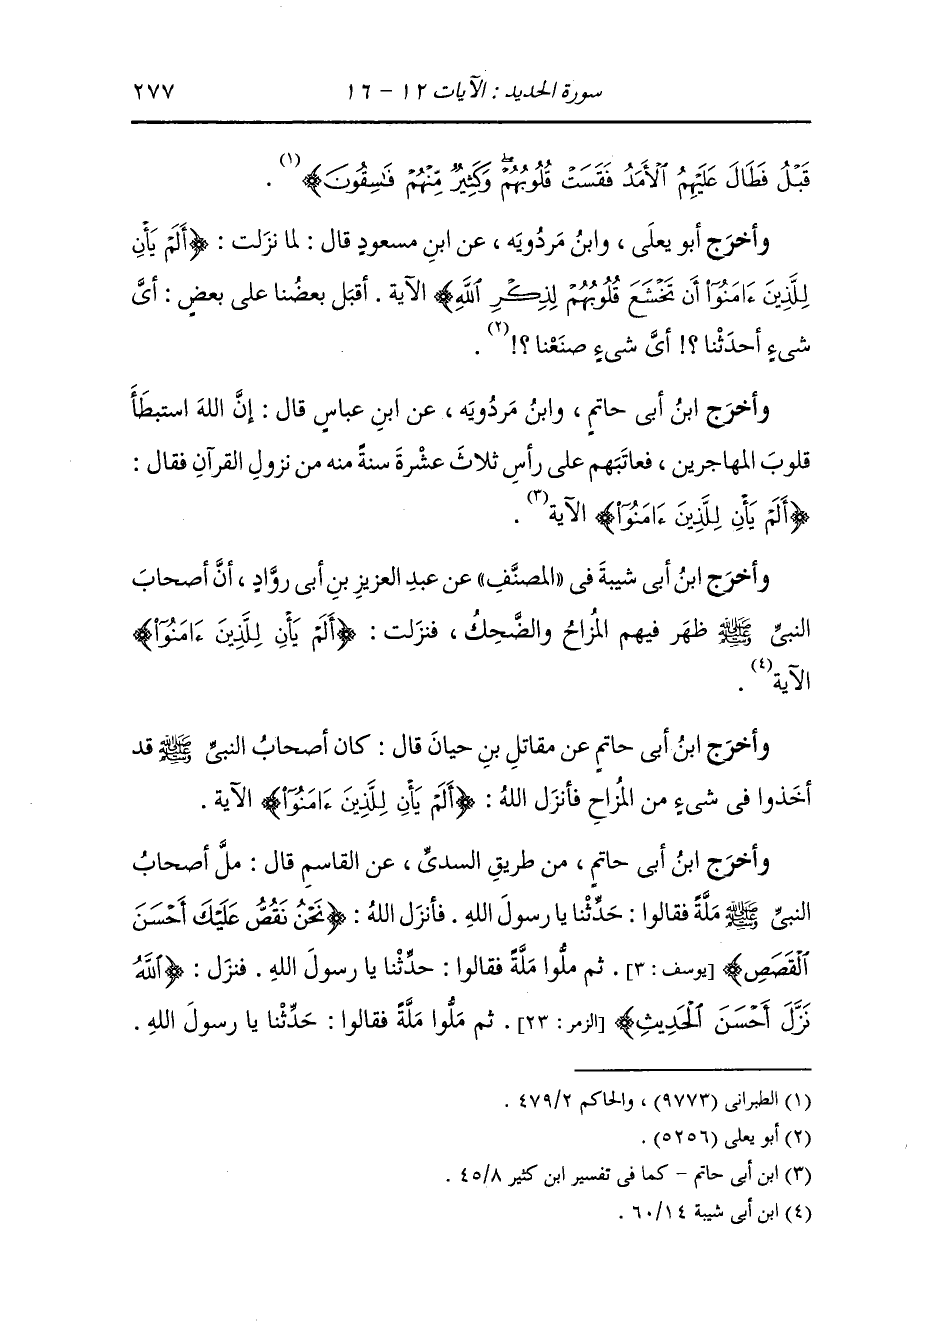 سورة الحديد : الآيات ١٢ - ١٦ ٢٧٧
قَبْلُ فَطَالَ عَلَيْهِمُ ٱلْأَمَدُ فَقَسَتْ قُلُوبُهُمْۖ وَكَثِيرٌ مِّنْهُمْ فَـٰسِقُونَ﴾(١) .
وأخرَج أبو يعلَى ، وابنُ مَردُويَه ، عن ابنِ مسعودٍ قال : لما نزَلت : ﴿أَلَمْ يَأْنِ
لِلَّذِينَ ءَامَنُوٓا۟ أَن تَخْشَعَ قُلُوبُهُمْ لِذِكْرِ ٱللَّهِ﴾ الآية . أقبَل بعضُنا على بعضٍ : أىَّ
شىءٍ أحدَثْنا ؟! أىَّ شىءٍ صنَعْنا ؟!(٢) .
وأخرَج ابنُ أبى حاتمٍ ، وابنُ مَردُويَه ، عن ابنِ عباسٍ قال : إنَّ اللهَ استبطَأَ
قلوبَ المهاجرين ، فعاتَبَهم على رأسِ ثلاثَ عشْرةَ سنةً منه من نزولِ القرآنِ فقال :
﴿أَلَمْ يَأْنِ لِلَّذِينَ ءَامَنُوٓا۟﴾ الآية(٣) .
وأخرَج ابنُ أبى شيبةَ فى «المصنَّفِ» عن عبدِ العزيزِ بنِ أبى روَّادٍ ، أنَّ أصحابَ
النبىِّ ﷺ ظهَر فيهم المُزاحُ والضَّحِكُ ، فنزَلت : ﴿أَلَمْ يَأْنِ لِلَّذِينَ ءَامَنُوٓا۟﴾
الآية(٤) .
وأخرَج ابنُ أبى حاتمٍ عن مقاتلِ بنِ حيانَ قال : كان أصحابُ النبىِّ ﷺ قد
أخَذوا فى شىءٍ من المُزاحِ فأنزَل اللهُ : ﴿أَلَمْ يَأْنِ لِلَّذِينَ ءَامَنُوٓا۟﴾ الآية .
وأخرَج ابنُ أبى حاتمٍ ، من طريقِ السدىِّ ، عن القاسمِ قال : ملَّ أصحابُ
النبىِّ ﷺ مَلَّةً فقالوا : حَدِّثْنا يا رسولَ اللهِ . فأنزَل اللهُ : ﴿نَحْنُ نَقُصُّ عَلَيْكَ أَحْسَنَ
ٱلْقَصَصِ﴾ [يوسف : ٣] . ثم ملُّوا مَلَّةً فقالوا : حدِّثْنا يا رسولَ اللهِ . فنزَل : ﴿ٱللَّهُ
نَزَّلَ أَحْسَنَ ٱلْحَدِيثِ﴾ [الزمر : ٢٣] . ثم مَلُّوا مَلَّةً فقالوا : حَدِّثْنا يا رسولَ اللهِ .
(١) الطبرانى (٩٧٧٣) ، والحاكم ٤٧٩/٢ .
(٢) أبو يعلى (٥٢٥٦) .
(٣) ابن أبى حاتم - كما فى تفسير ابن كثير ٤٥/٨ .
(٤) ابن أبى شيبة ٦٠/١٤ .